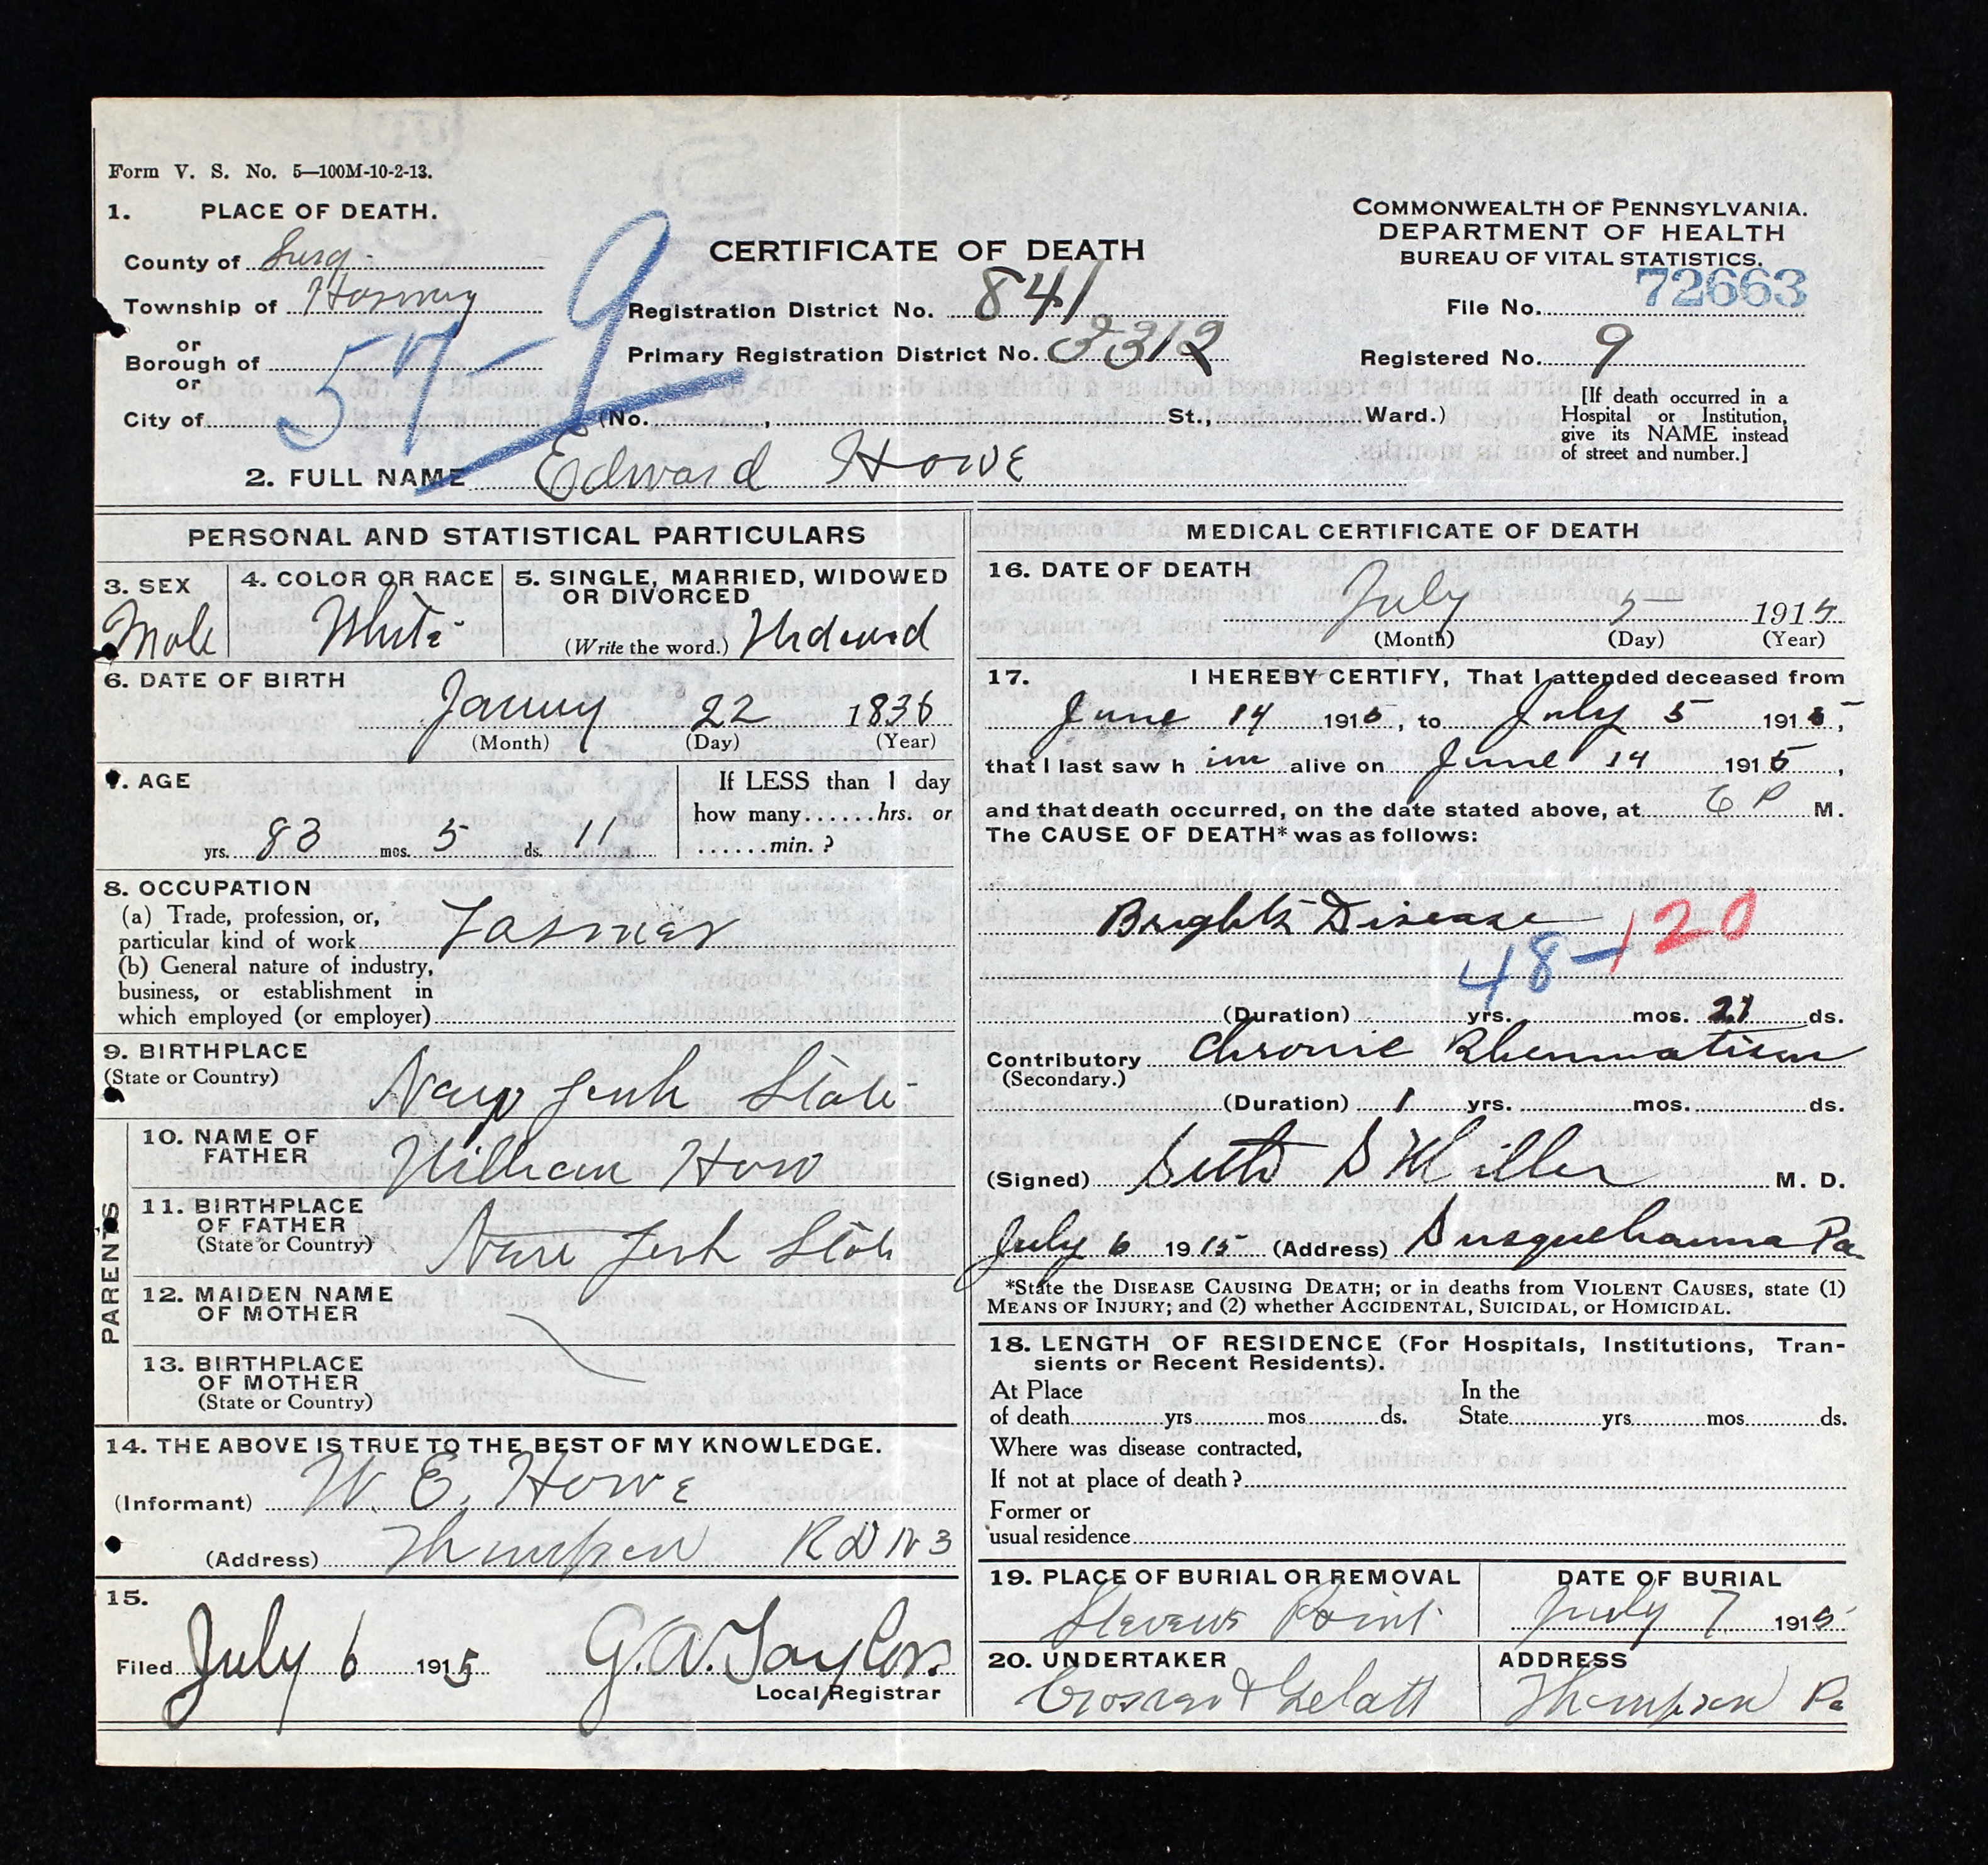 Form V. S. No. 5—100M-10-2-13.
1. PLACE OF DEATH.
County of Susq.
Township of Harmony
or
Borough of
or
City of
57-9
CERTIFICATE OF DEATH
Registration District No. 841
Primary Registration District No. 3312
(No. , St., Ward.)
COMMONWEALTH OF PENNSYLVANIA.
DEPARTMENT OF HEALTH
BUREAU OF VITAL STATISTICS.
72663
File No.
Registered No. 9
[If death occurred in a
Hospital or Institution,
give its NAME instead
of street and number.]
2. FULL NAME Edward Howe
PERSONAL AND STATISTICAL PARTICULARS
3. SEX
Male
4. COLOR OR RACE
White
5. SINGLE, MARRIED, WIDOWED
OR DIVORCED
(Write the word.)
6. DATE OF BIRTH
22 1836
(Month) (Day) (Year)
7. AGE
yrs. 83 mos. 5 ds. 11
If LESS than 1 day
how many......hrs. or
......min. ?
8. OCCUPATION
(a) Trade, profession, or,
particular kind of work Farmer
(b) General nature of industry,
business, or establishment in
which employed (or employer)
9. BIRTHPLACE
(State or Country)
State
PARENTS
10. NAME OF
FATHER
William How
11. BIRTHPLACE
OF FATHER
(State or Country)
State
12. MAIDEN NAME
OF MOTHER
13. BIRTHPLACE
OF MOTHER
(State or Country)
14. THE ABOVE IS TRUE TO THE BEST OF MY KNOWLEDGE.
(Informant) W. E. Howe
(Address) Thompson R D N 3
15.
Filed July 6 1915 G.A. Taylor
Local Registrar
MEDICAL CERTIFICATE OF DEATH
16. DATE OF DEATH
July 5 1915
(Month) (Day) (Year)
17. I HEREBY CERTIFY, That I attended deceased from
June 14 1915, to July 5 1915,
that I last saw h im alive on June 14 1915,
and that death occurred, on the date stated above, at 6 P M.
The CAUSE OF DEATH* was as follows:
Brights Disease
48-120
(Duration) yrs. mos. 21 ds.
Contributory Chronic Rheumatism
(Secondary.)
(Duration) 1 yrs. mos. ds.
(Signed) Seth S Miller M. D.
July 6 1915 (Address) Susquehanna Pa
*State the DISEASE CAUSING DEATH; or in deaths from VIOLENT CAUSES, state (1)
MEANS OF INJURY; and (2) whether ACCIDENTAL, SUICIDAL, or HOMICIDAL.
18. LENGTH OF RESIDENCE (For Hospitals, Institutions, Tran-
sients or Recent Residents).
At Place In the
of death yrs mos ds. State yrs mos ds.
Where was disease contracted,
If not at place of death ?
Former or
usual residence
19. PLACE OF BURIAL OR REMOVAL
Stevens Point
DATE OF BURIAL
July 7 1915
20. UNDERTAKER
& Gelatt
ADDRESS
Thompson Pa